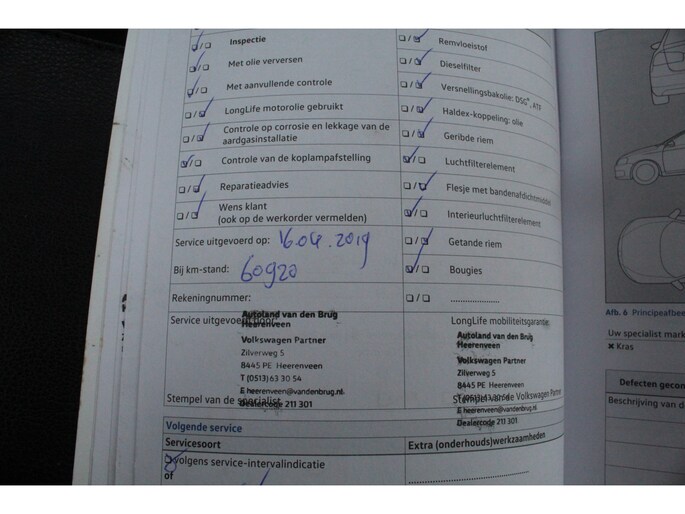 Inspectie
Met olie verversen
Met aanvullende controle
LongLife motorolie gebruikt
Controle op corrosie en lekkage van de
aardgasinstallatie
Controle van de koplampafstelling
Reparatieadvies
Wens klant
(ook op de werkorder vermelden)
Service uitgevoerd op: 16.04.2019
Bij km-stand: 60920
Rekeningnummer:
Service uitgevoerd door:
Autoland van den Brug
Heerenveen
Volkswagen Partner
Zilverweg 5
8445 PE Heerenveen
T (0513) 63 30 54
E heerenveen@vandenbrug.nl
Dealercode 211 301
Stempel van de specialist
Remvloeistof
Dieselfilter
Versnellingsbakolie: DSG®, ATF
Haldex-koppeling: olie
Geribde riem
Luchtfilterelement
Flesje met bandenafdichtmiddel
Interieurluchtfilterelement
Getande riem
Bougies
....................
LongLife mobiliteitsgarantie
Autoland van den Brug
Heerenveen
Volkswagen Partner
Zilverweg 5
8445 PE Heerenveen
T (0513) 63 30 54
E heerenveen@vandenbrug.nl
Dealercode 211 301
Stempel van de Volkswagen Partner
Volgende service
Servicesoort
Extra (onderhouds)werkzaamheden
volgens service-intervalindicatie
of
Afb. 6 Principeafbee
Uw specialist mark
× Kras
Defecten gecon
Beschrijving van d